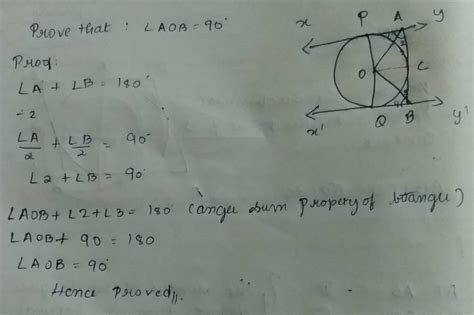 Prove that : ∠AOB = 90°
Proof:
∠A + ∠B = 180°
÷2
∠A/2 + ∠B/2 = 90°
∠2 + ∠B = 90°
∠AOB + ∠2 + ∠3 = 180° (angle sum property of triangle)
∠AOB + 90 = 180
∠AOB = 90°
Hence Proved //.
x P A y
O C
x' Q B y'